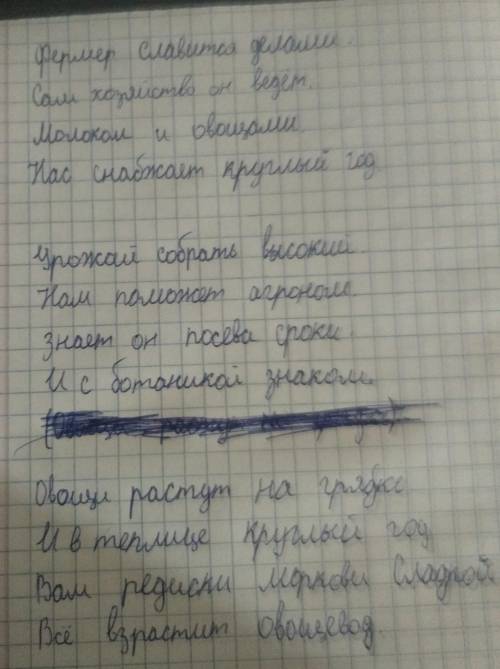 Фермер славится делами.
Сам хозяйство он ведёт.
Молоком и овощами
Нас снабжает круглый год
Урожай собрать высокий
Нам поможет агроном.
Знает он посева сроки
И с ботаникой знаком.
Овощи растут на грядке
И в теплице круглый год
Вам редиски моркови сладкой
Всё взрастит овощевод.